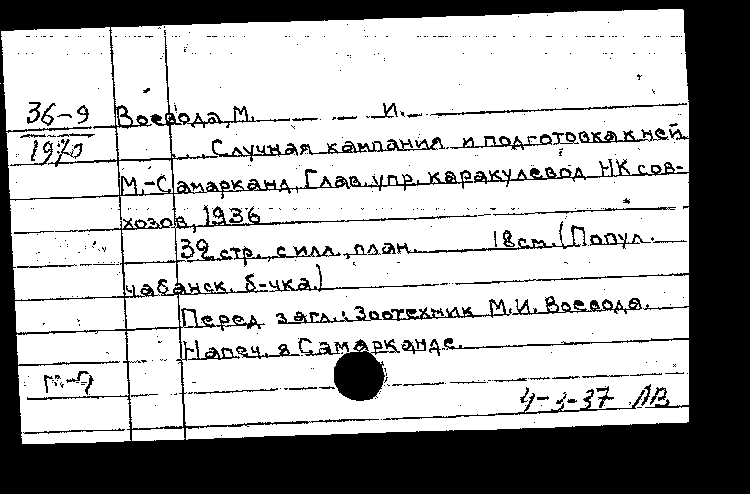 36-9 Воевода, М. И.
1970 Случная кампания и подготовка к ней
М.-Самарканд, Глав. упр. каракулевод НК сов-
хозов, 1936
32 стр., с илл., план. 18 см. (Попул.
чабанск. б-чка.)
Перед загл.: Зоотехник М.И. Воевода.
Напеч. в Самарканде.
4-3-37 ЛВ